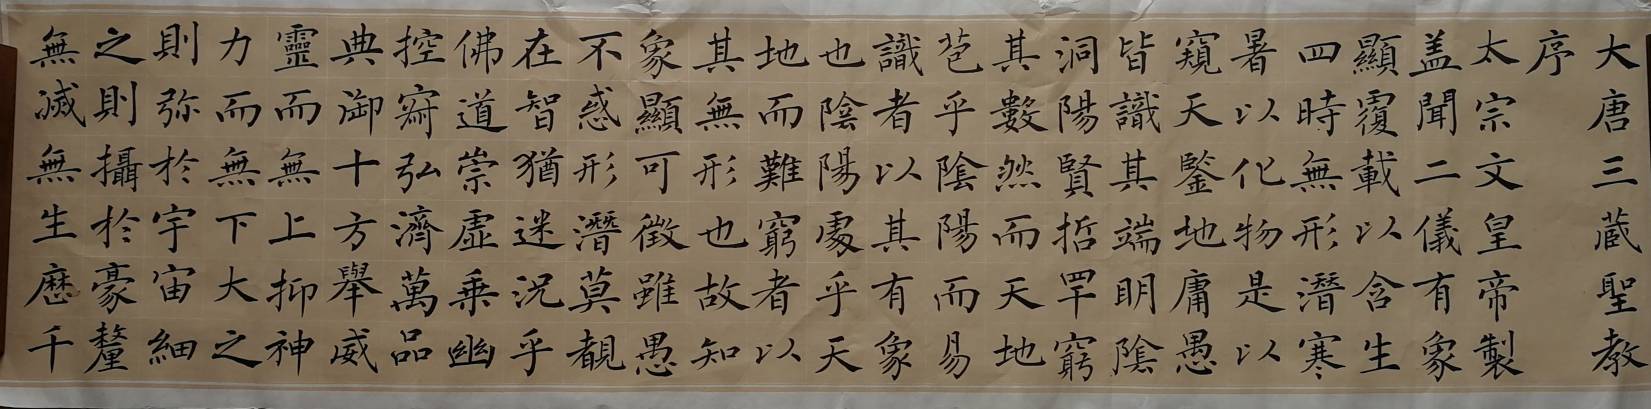 大唐三蔵聖教
序
太宗文皇帝製
盖聞二儀有象
顯覆載以含生
四時無形潛寒
暑以化物是以
窺天鑒地庸愚
皆識其端明陰
洞陽賢哲罕窮
其數然而天地
苞乎陰陽而易
識者以其有象
也陰陽處乎天
地而難窮者以
其無形也故知
象顯可徵雖愚
不惑形潛莫覩
在智猶迷況乎
佛道崇虛乗幽
控寂弘濟萬品
典御十方舉威
靈而無上抑神
力而無下大之
則弥於宇宙細
之則攝於豪釐
無滅無生歷千